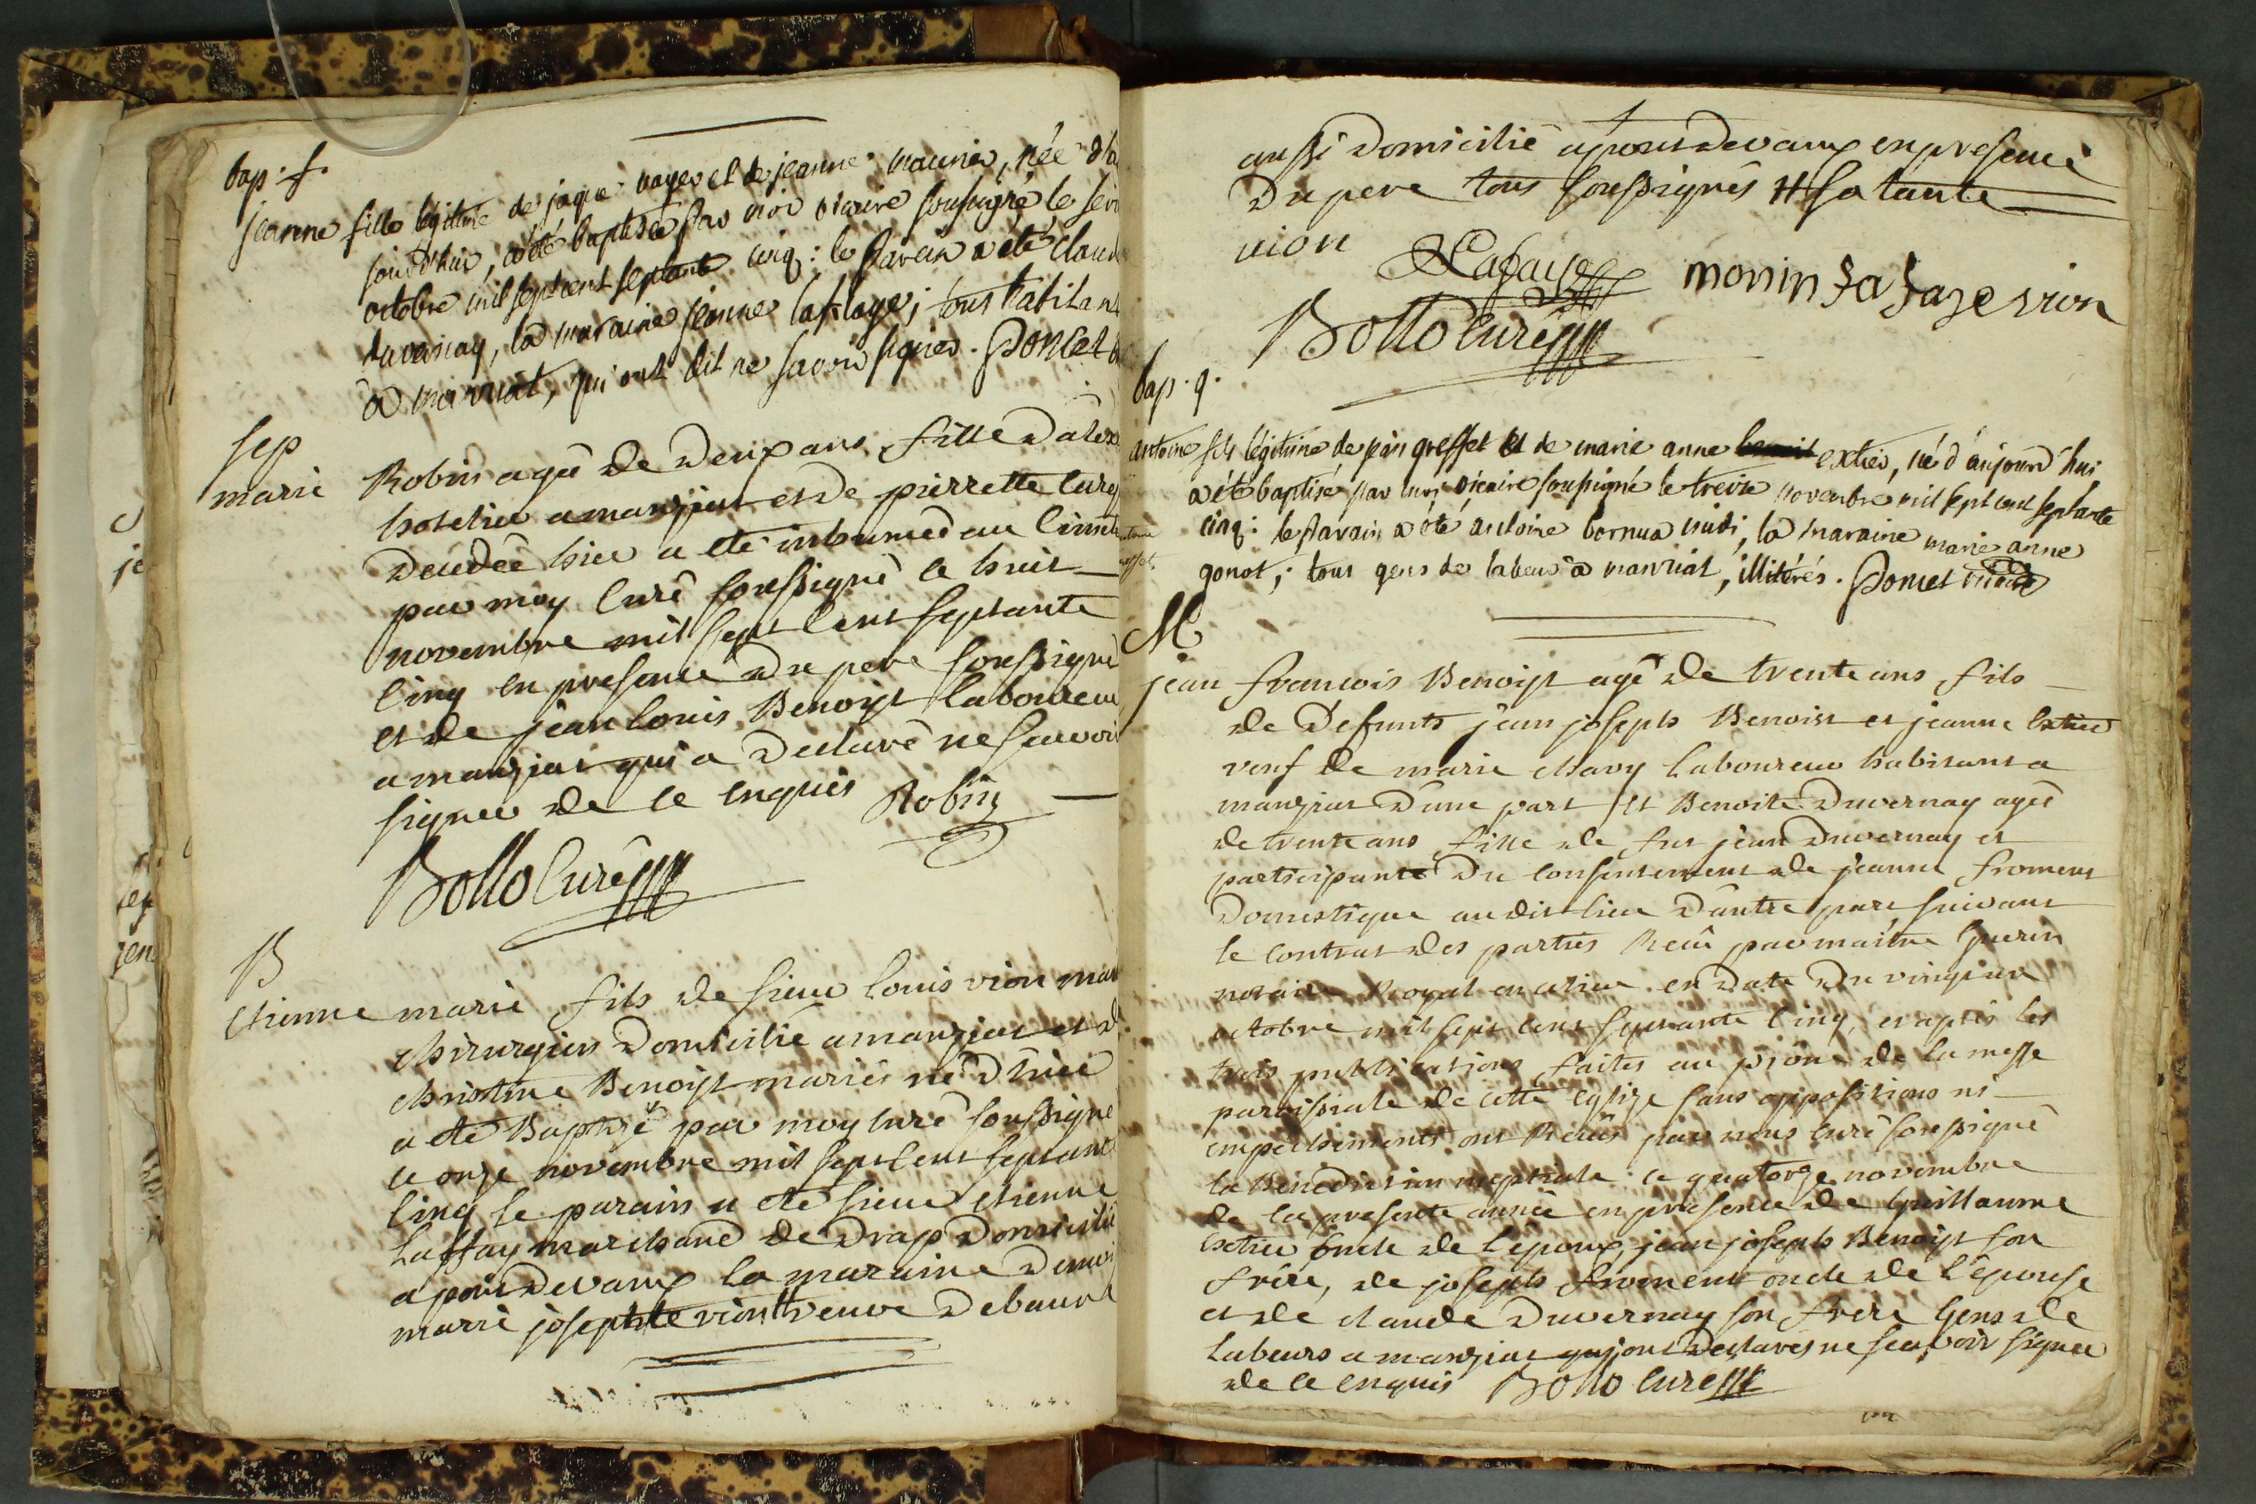 bap. f.
jeanne fille légitime de jaque voyer et de jeanne maunier, née d'au
jourd'hui, a été baptisée par moi vicaire soussigné le
octobre mil sept cent septante cinq : le parain a été claude
duvernay, la maraine jeanne laplage ; tous habitants
à manziat, qui ont dit ne savoir signer. Poncet
sep
marie Robin agée de deux ans fille d'alex
hotelier a manziat et de pierrette curt
décédée hier a été inhumée au cime
par moy curé soussigné le huit
novembre mil sept cent septante
cinq en presence du pere soussigné
et de jean louis Benoist laboureur
a manziat qui a déclaré ne sçavoir
signer de ce enquis Robin
Bollo curé
B
etienne marie fils de sieur louis vion
chirurgien domicilié a manziat et de
christine Benoist mariés né d'hier
a été Baptisé par moy curé soussigné
le onze novembre mil sept cent septante
cinq le parain a été sieur etienne
Laffay marchand de drap domicilié
a pont devaux la maraine
marie josephte vion # veuve
aussi domicilié a pont devaux en presence
du pere tous soussignés # sa tante
vion Lafaye monin Lafaye vion
Bollo curé
bap. g.
antoine fils légitime de jean greffet et de marie anne extier, né d'aujourd'hui
a été baptisé par moi vicaire soussigné le treize novembre mil sept cent septante
cinq : le parain a été antoine bornua, la maraine marie anne
gonot ; tous gens de labeur à manziat, illitérés. Poncet vicaire
M
jean francois Benoist agé de trente ans fils
de défunts jean joseph Benoist et jeanne Extier
veuf de marie chavy laboureur habitant a
manziat d'une part Et Benoite Duvernay agée
de trente ans fille de feu jean Duvernay et
participante du consentement de jeanne froment
domestique au dit lieu d'autre part suivant
le contrat des parties Reçu par maitre Guerin
notaire Royal en date du vingt un
octobre mil sept cent septante cinq, et après les
trois publications faites au prône de la messe
paroissiale de cette église sans oppositions ni
empechements ont Reçus par nous curé soussigné
la Bénédiction nuptiale le quatorze novembre
de la presente année en presence de Guillaume
Extier oncle de l'époux, jean joseph Benoist son
frère, de joseph froment oncle de l'épouse
et de claude Duvernay son frere Gens de
labeurs a manziat qui ont déclarés ne sçavoir signer
de ce enquis Bollo curé